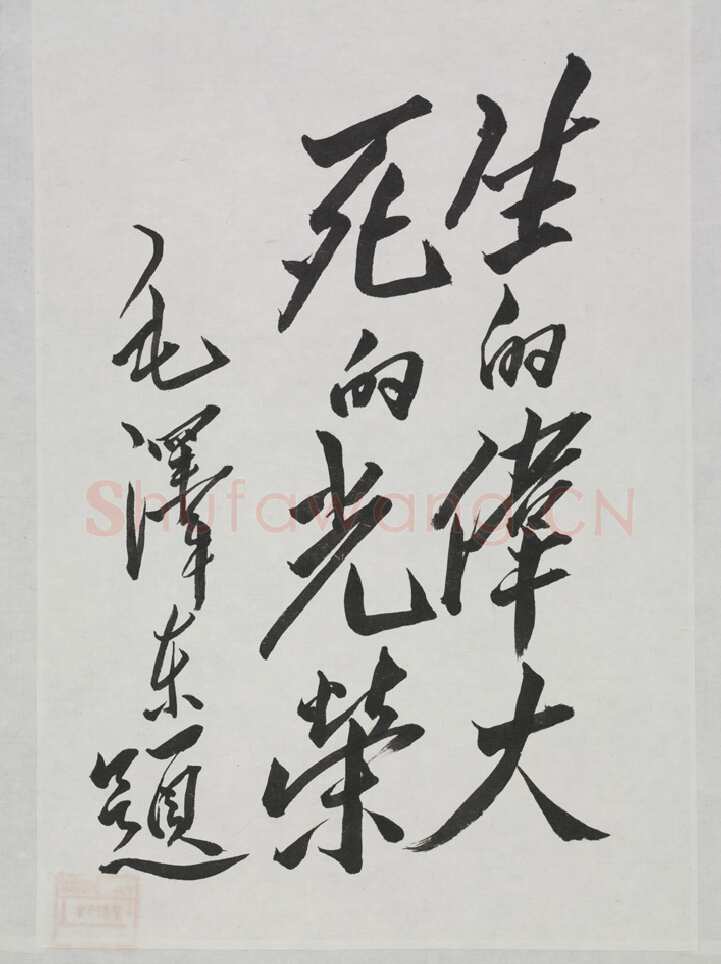 生的偉大
死的光榮
毛澤东題
Shufawang.CN